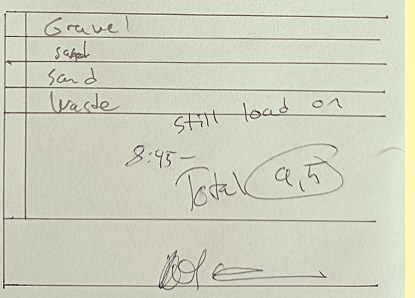 Gravel
sand
sand
Waste
still load on
8:45-
Total 9,5